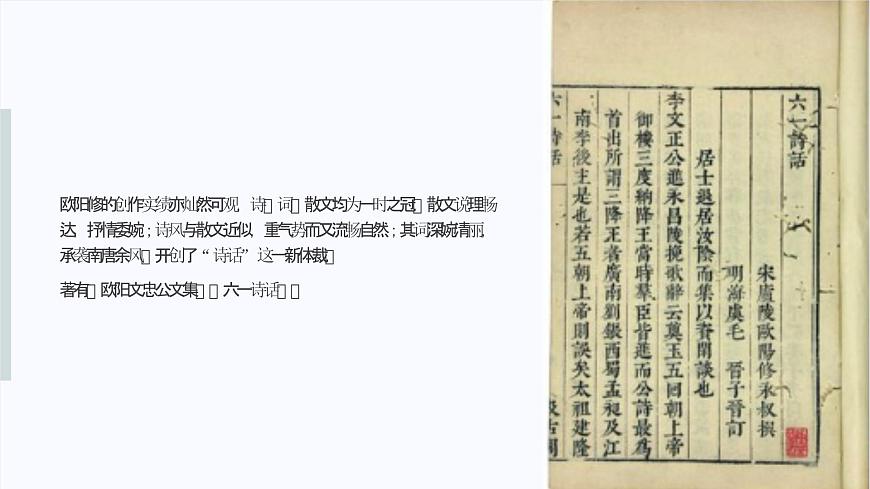 欧阳修的创作实绩亦灿然可观 诗□词□散文均为一时之冠□散文说理畅
达 抒情委婉；诗风与散文近似 重气势而又流畅自然；其词深婉清丽
承袭南唐余风□开创了“诗话”这一新体裁□
著有□欧阳文忠公文集□□六一诗话□□
六一詩話
宋廬陵歐陽修永叔撰
明海虞毛 晉子晉訂
居士退居汝隂而集以資閒談也
李文正公進永昌陵挽歌辭云奠玉五回朝上帝
御樓三度納降王當時羣臣皆進而公詩最爲
首出所謂三降王者廣南劉鋹西蜀孟昶及江
南李後主是也若五朝上帝則誤矣太祖建隆
六一詩話